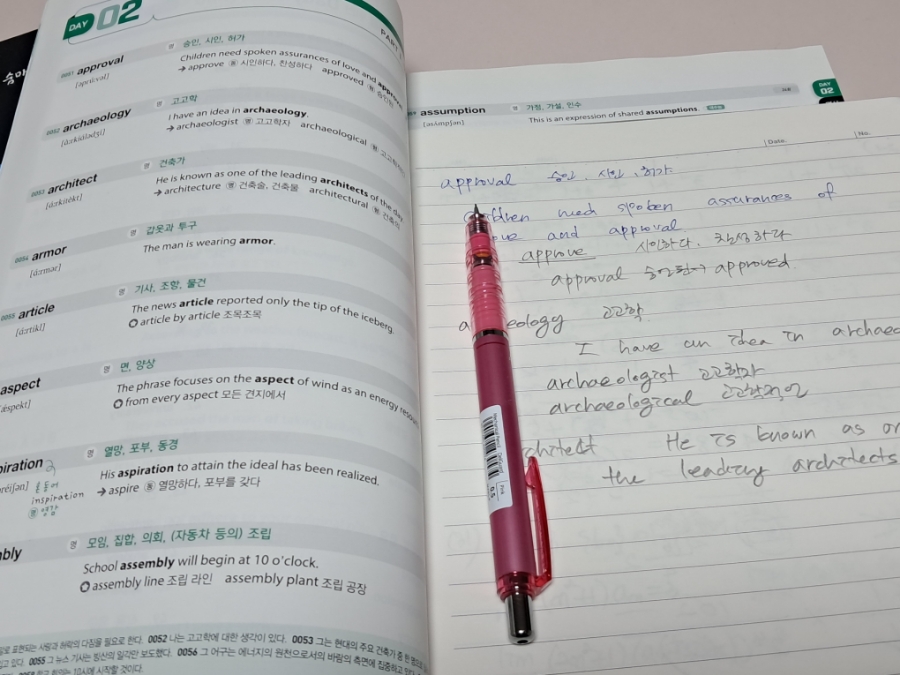 DAY 02
PART
0051 approval 명 승인, 시인, 허가
Children need spoken assurances of love and
→ approve 동 시인하다, 찬성하다 approved 형
0052 archaeology 명 고고학
I have an idea in archaeology.
→ archaeologist 명 고고학자 archaeological 형
0053 architect 명 건축가
He is known as one of the leading architects of the day.
→ architecture 명 건축술, 건축물 architectural 형
0054 armor 명 갑옷과 투구
[á:rmər] The man is wearing armor.
0055 article 명 기사, 조항, 물건
[á:rtikl] The news article reported only the tip of the iceberg.
article by article 조목조목
aspect 명 면, 양상
The phrase focuses on the aspect of wind as an energy
from every aspect 모든 견지에서
piration 명 열망, 포부, 동경
His aspiration to attain the ideal has been realized.
→ aspire 동 열망하다, 포부를 갖다
inspiration
명 영감
mbly 명 모임, 집합, 의회, (자동차 등의) 조립
School assembly will begin at 10 o'clock.
assembly line 조립 라인 assembly plant 조립 공장
표현되는 사랑과 허락의 다짐을 필요로 한다. 0052 나는 고고학에 대한 생각이 있다. 0053 그는 현대의 주요 건축가 중
있다. 0055 그 뉴스 기사는 빙산의 일각만 보도했다. 0056 그 어구는 에너지의 원천으로서의 바람의 측면에 집중하고
회는 10시에 시작할 것이다.
assumption 명 가정, 가설, 인수
[əsʌ́mpʃən] This is an expression of shared assumptions.
DAY
02
Date.
No.
approval 승인, 시인, 허가
children need spoken assurances of
and approval
approve 시인하다, 찬성하다
approval 승인 approved
eology 고고학
I have an idea in archaeo
archaeologist 고고학자
archaeological 고고학적인
chitect He is known as on
the leading architects
0.5